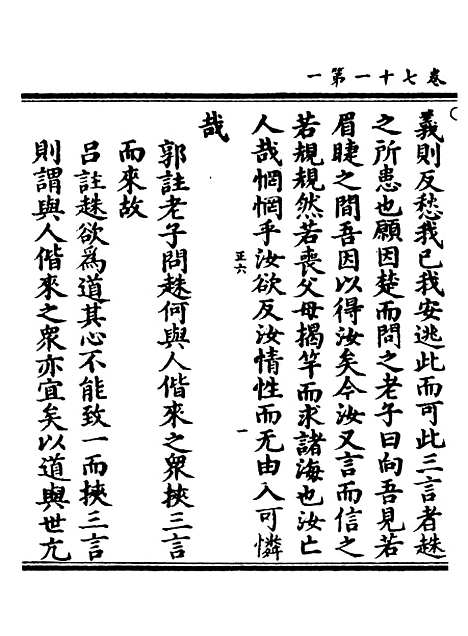 卷七十一第一
義則反愁我已我安逃此而可此三言者趎
之所患也願因楚而問之老子曰向吾見若
眉睫之間吾因以得汝矣今汝又言而信之
若規規然若喪父母揭竿而求諸海也汝亡
人哉惘惘乎汝欲反汝情性而无由入可憐
正六
一
哉
郭註老子問趎何與人偕來之衆挾三言
而來故
呂註趎欲爲道其心不能致一而挾三言
則謂與人偕來之衆亦宜矣以道與世亢